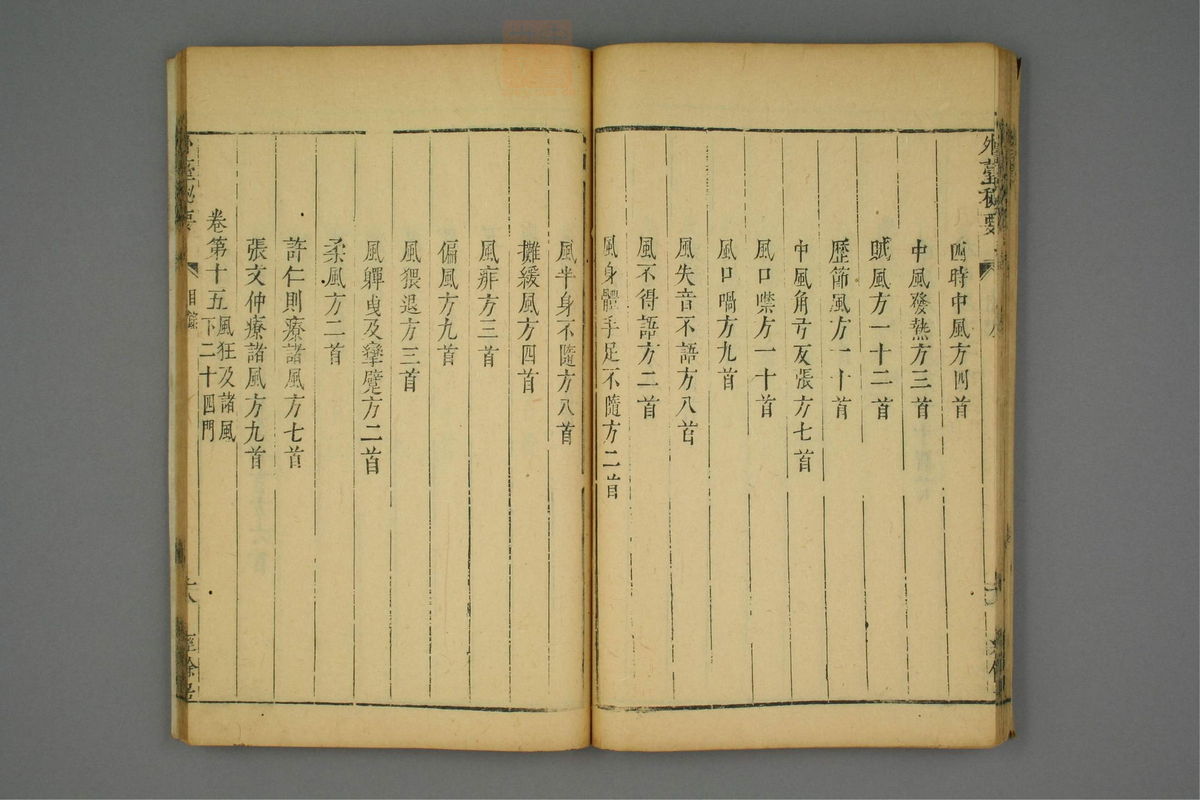 外臺秘要
四時中風方四首
中風發熱方三首
賊風方一十二首
歷節風方一十首
中風角弓反張方七首
風口噤方一十首
風口喎方九首
風失音不語方八首
風不得語方二首
風身體手足不隨方二首
風半身不隨方八首
攤緩風方四首
風痱方三首
偏風方九首
風猥退方三首
風軃曳及攣躄方二首
柔風方二首
許仁則療諸風方七首
張文仲療諸風方九首
卷第十五風狂及諸風下二十四門
外臺秘要
目錄
十八
經餘居